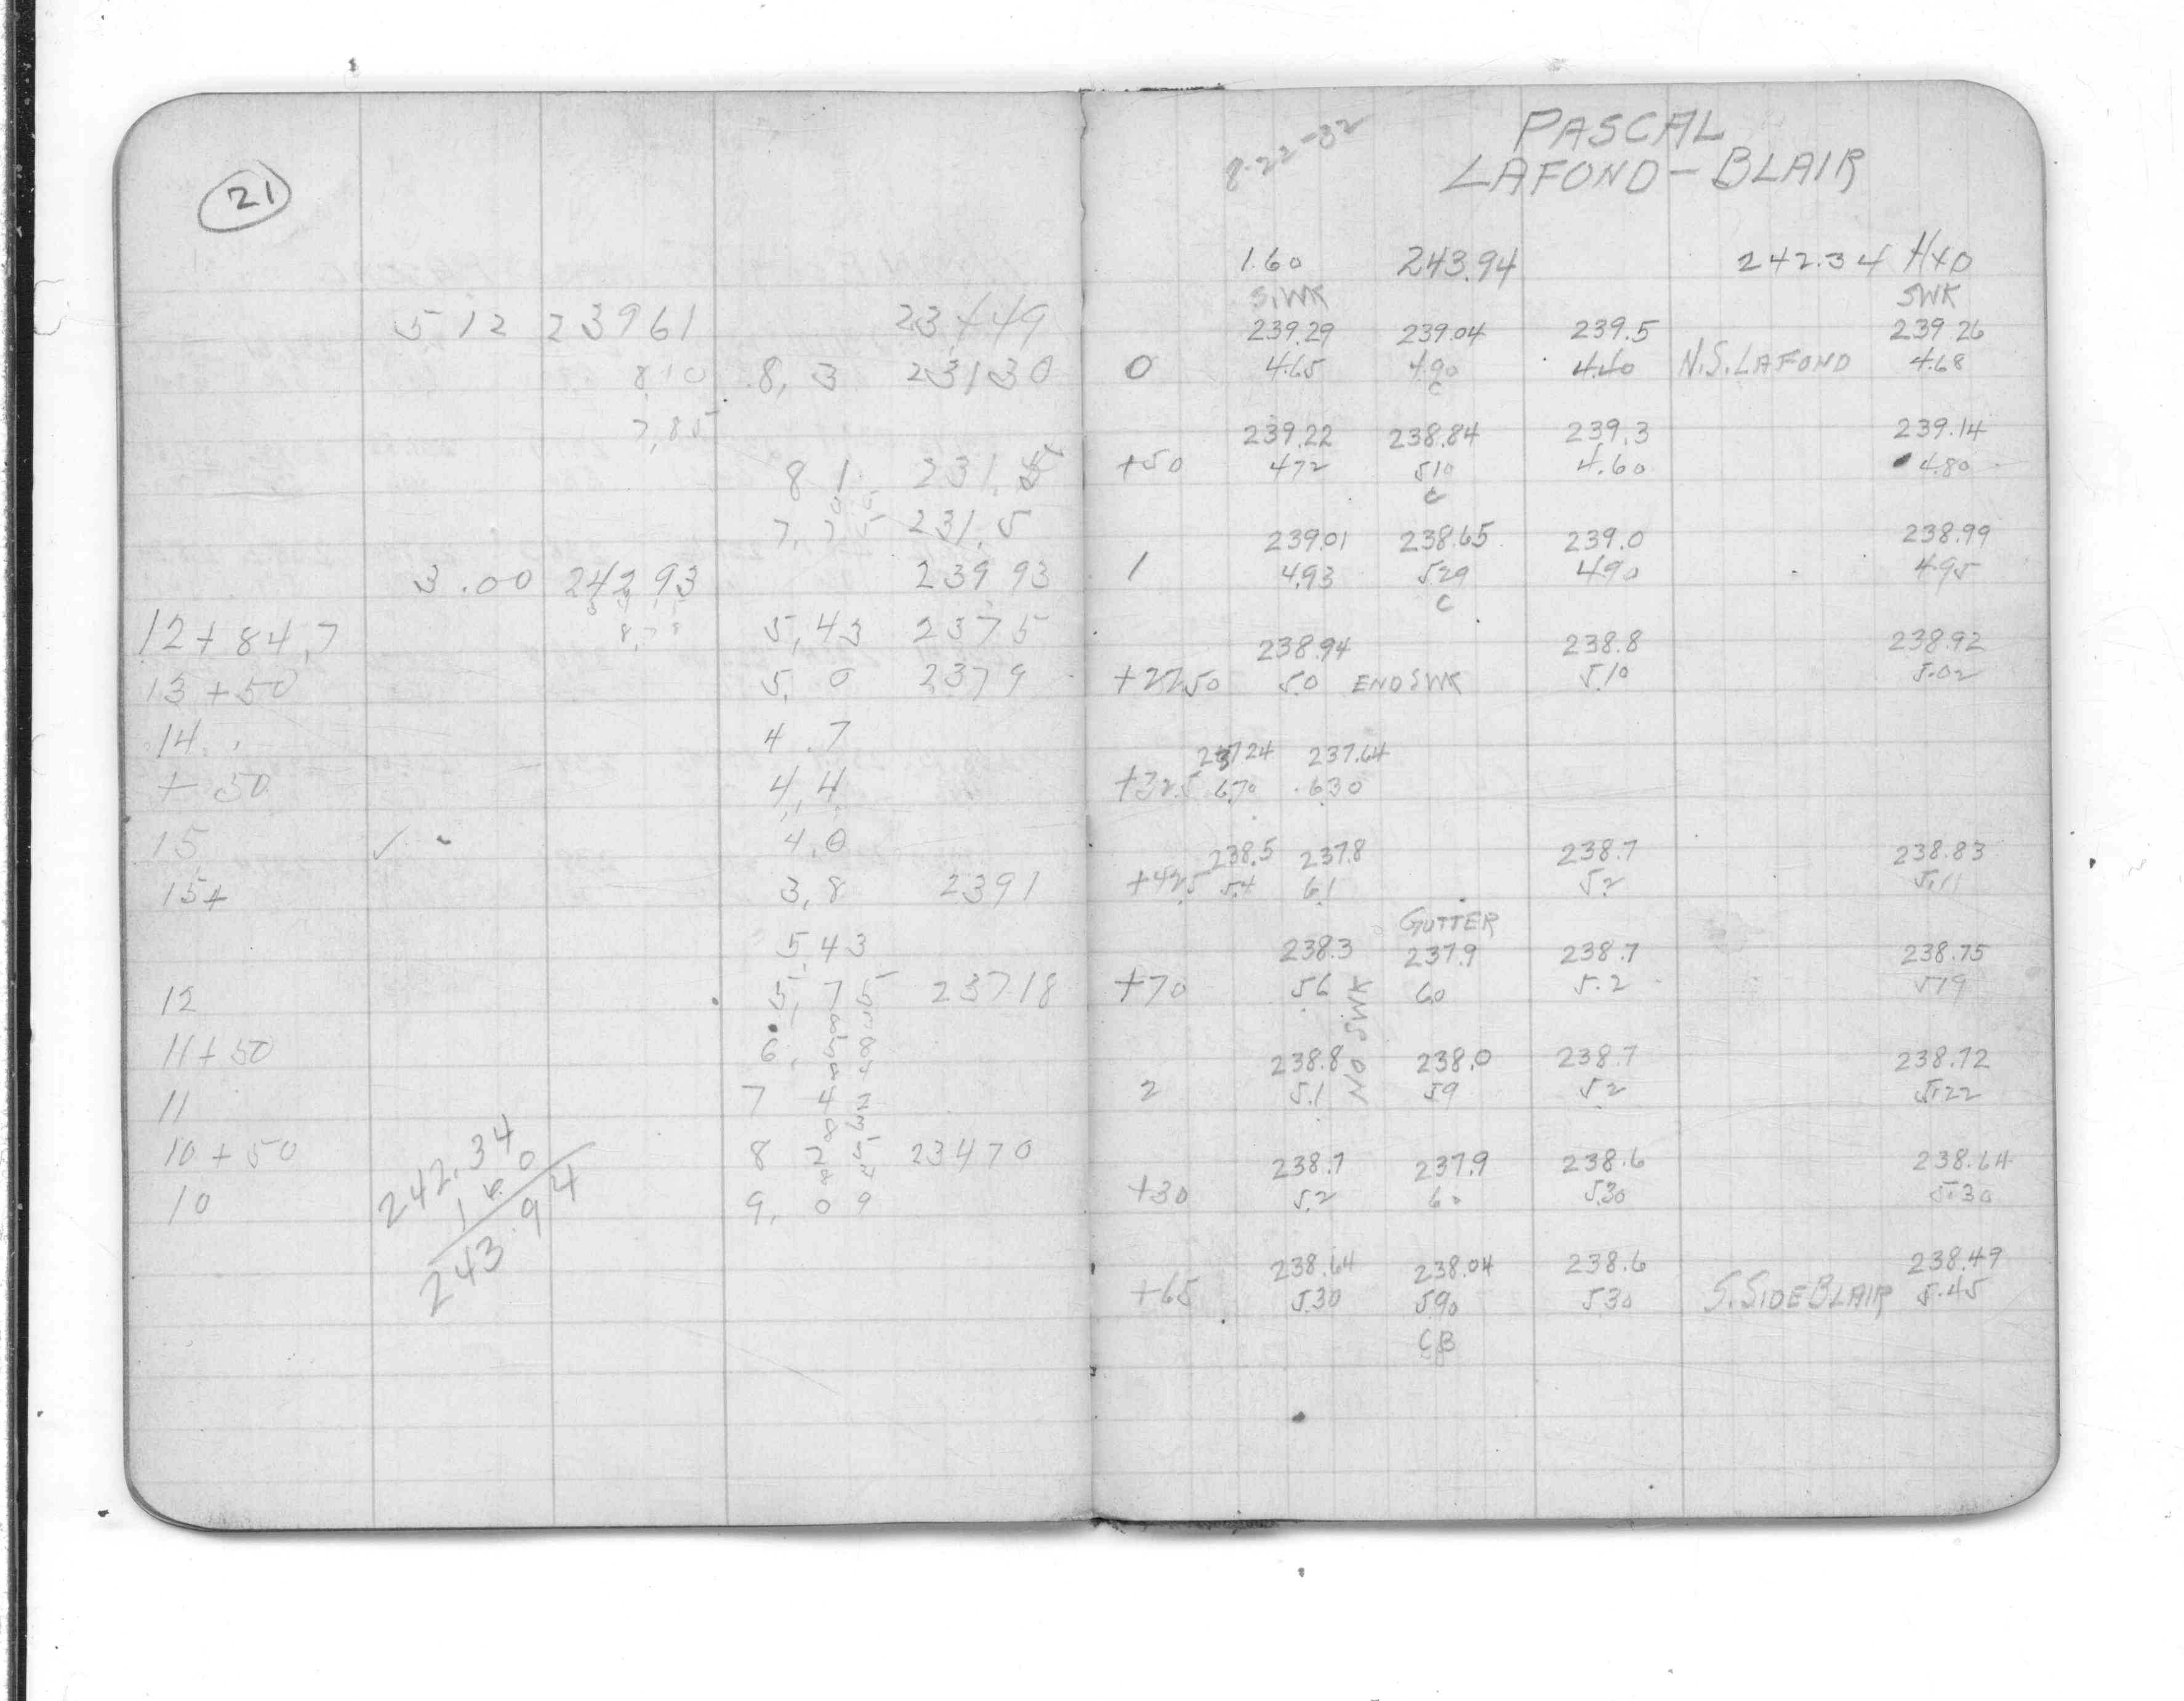 21
5 12 23961 23449
8 10 8, 3 23130
7,85
8 1 231.
7, 7 5 231.5
3.00 24293 239 93
12+84,7 5,43 2375
13+50 5, 0 2379
14 4.7
+50 4,4
15 ✓ 4,0
15+ 3,8 2391
5,43
12 5,75 23718
11+50 6,
11 7 4 2
10+50 8 2 5 23470
10 9, 0 9
242.34
1 60
243.94
8-22-32
PASCAL
LAFOND-BLAIR
1.60 243.94 242.34 HYD
S.WK SWK
239.29 239.04 239.5 239.26
0 4.65 4.90 4.40 N.S. LAFOND 4.68
C
239.22 238.84 239.3 239.14
+50 472 510 4.60 4.80
C
239.01 238.65 239.0 238.99
1 4.93 5.29 4.90 495
C
238.94 238.8 238.92
+22.50 5.0 END SWK 5.10 5.02
237.24 237.64
+32.5 6.70 .630
238.5 237.8 238.7 238.83
+42.5 5.4 6.1 5.2 5.11
GUTTER
238.3 237.9 238.7 238.75
+70 5.6 6.0 5.2 519
NO SWK
238.8 238.0 238.7 238.72
2 5.1 5.9 5.2 5.22
238.7 237.9 238.6 238.64
+30 5.2 6.0 5.30 5.30
238.64 238.04 238.6 238.49
+65 5.30 5.90 5.30 S. SIDE BLAIR 5.45
CB